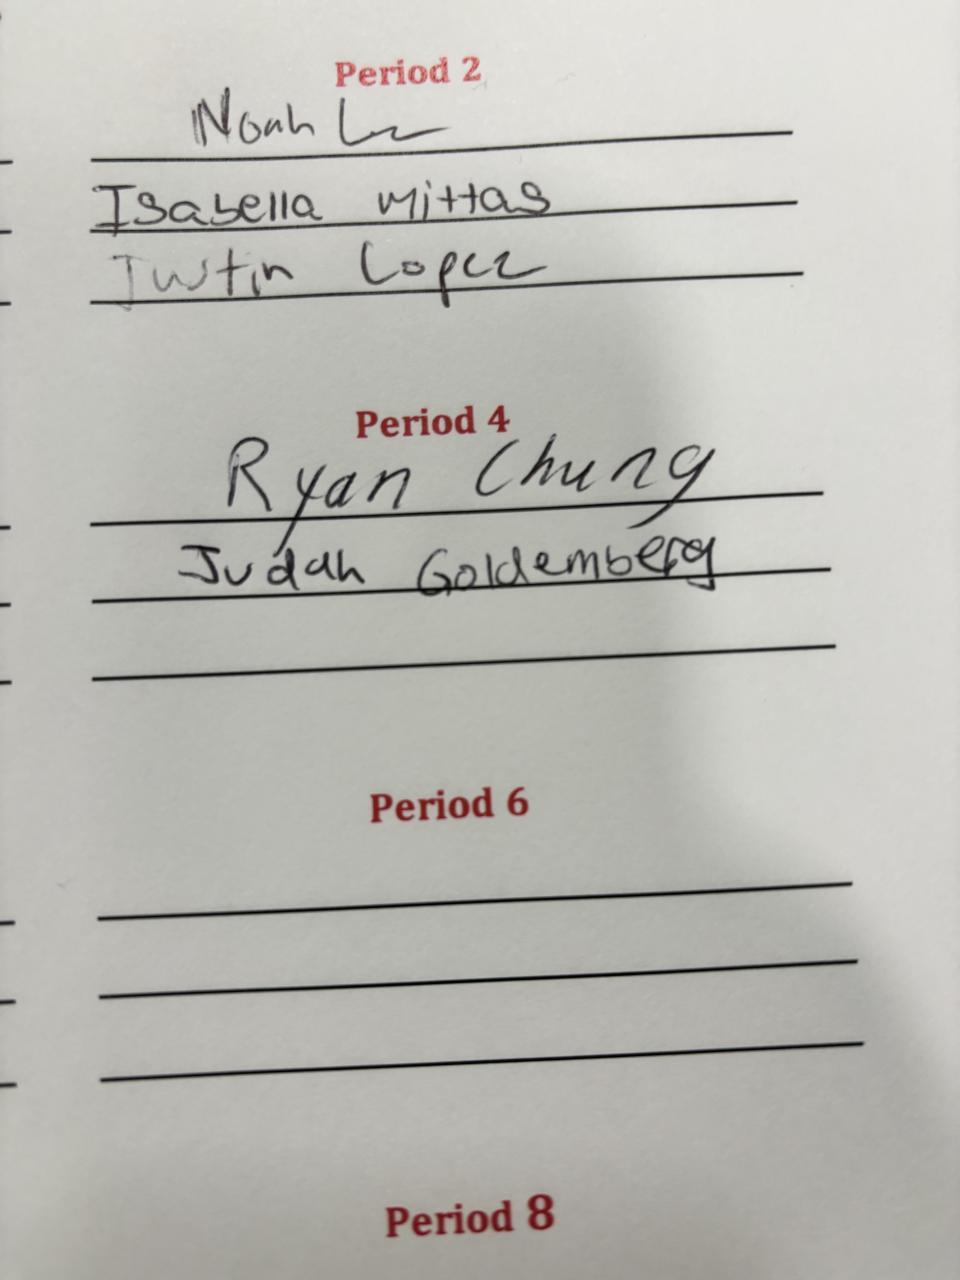 Period 2
Noah
Isabella Mittas
Justin Lopez
Period 4
Ryan Chung
Judah Goldemberg
Period 6
Period 8